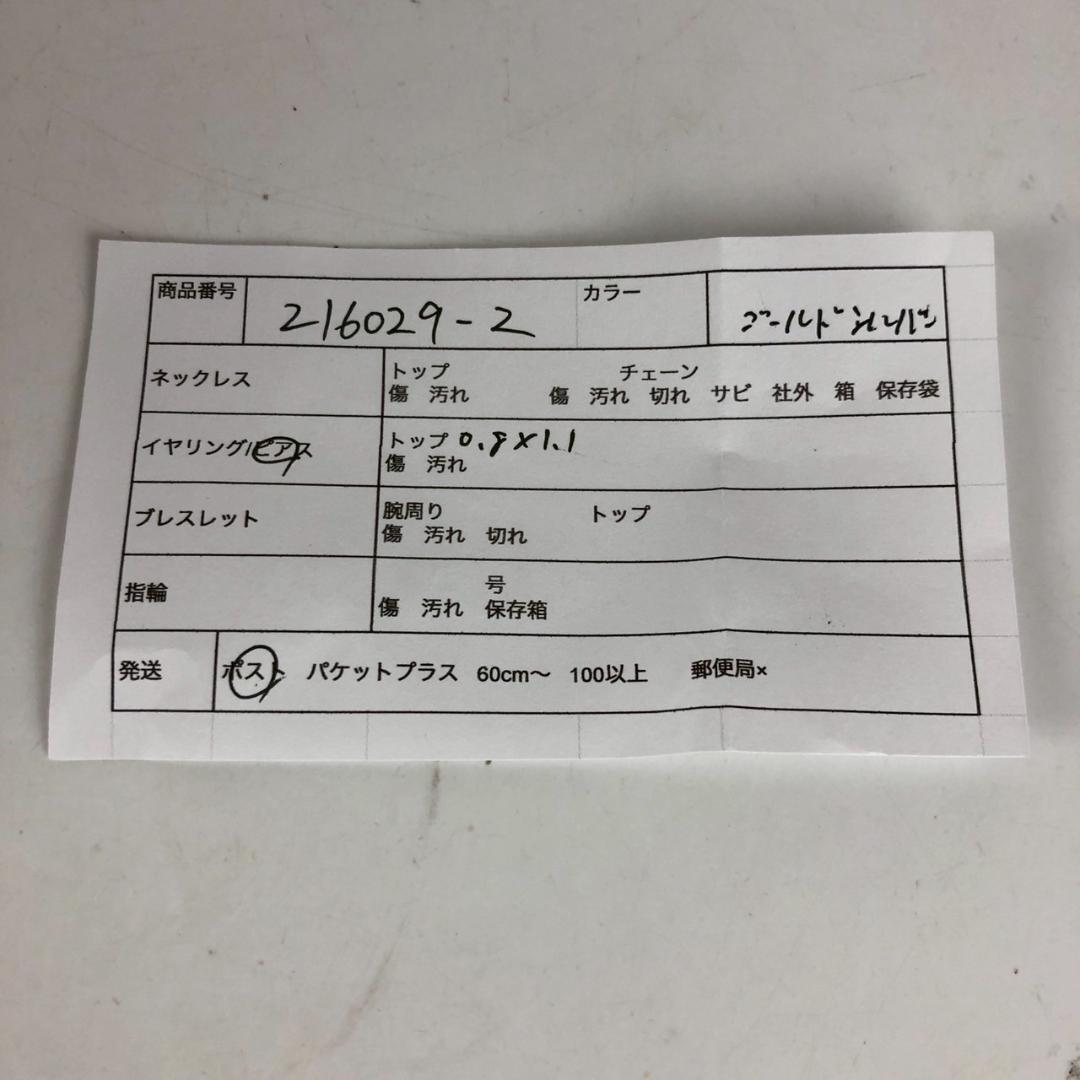 商品番号 216029-2 カラー ゴールド
ネックレス トップ チェーン
傷 汚れ 傷 汚れ 切れ サビ 社外 箱 保存袋
イヤリング/ピアス トップ 0.8×1.1
傷 汚れ
ブレスレット 腕周り トップ
傷 汚れ 切れ
指輪 号
傷 汚れ 保存箱
発送 ポスト パケットプラス 60cm〜 100以上 郵便局×